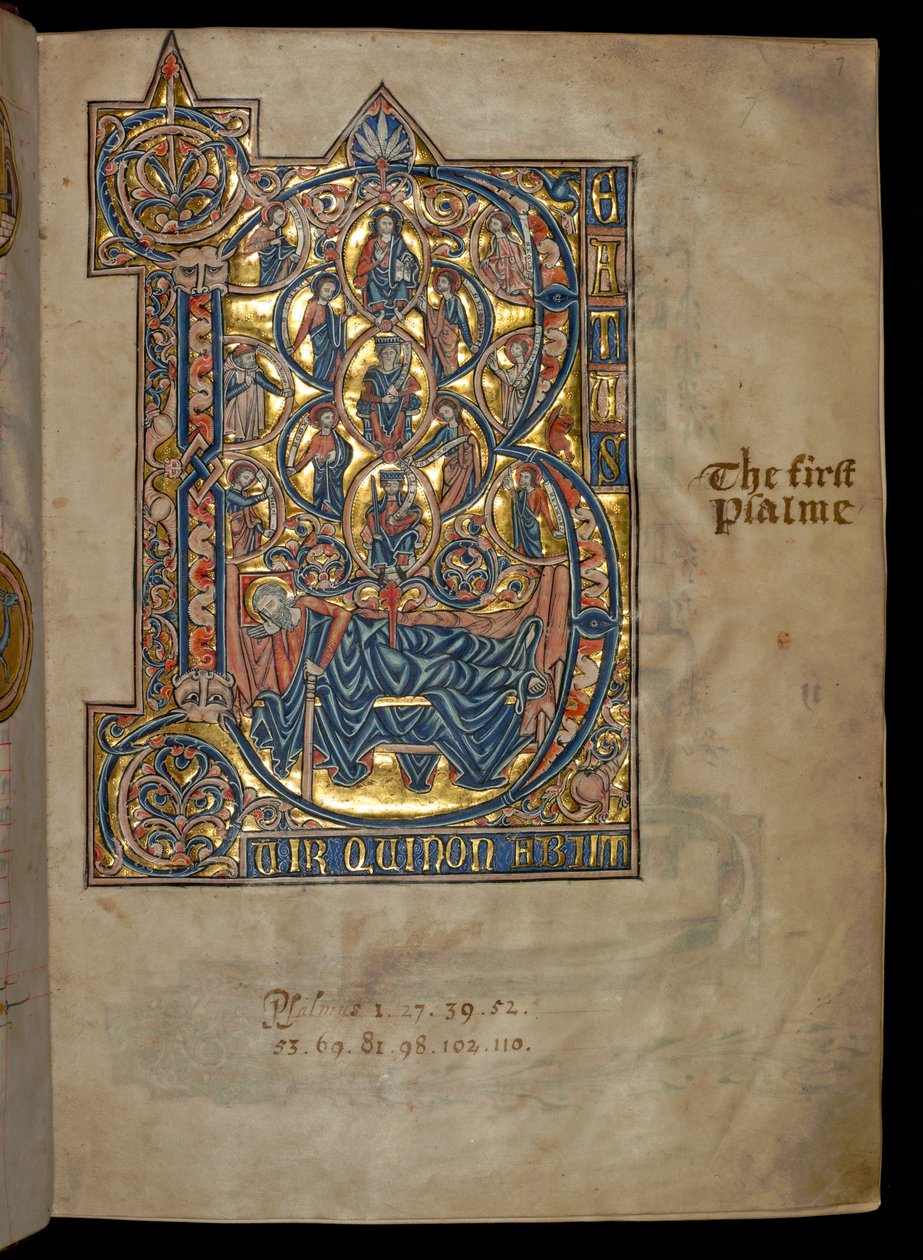 7
EATUS
The first
Psalme
UIR QUI NON ABIIT
Psalmus 1. 27. 39. 52.
53. 69. 81. 98. 102. 110.